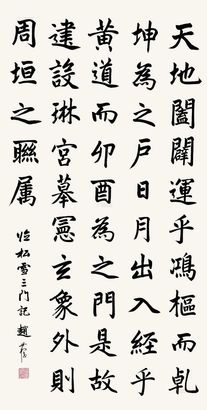 天地闔闢運乎鴻樞而乹
坤為之户日月出入經乎
黄道而卯酉為之門是故
建設琳宮摹憲玄象外則
周垣之聮属
临松雪三門記 趙